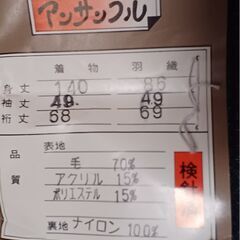 アンサンブル
着物 羽織
身丈 140 86
袖丈 49. 49
裄丈 68 69
品質
表地
毛 70%
アクリル 15%
ポリエステル 15%
裏地 ナイロン 100%
検針